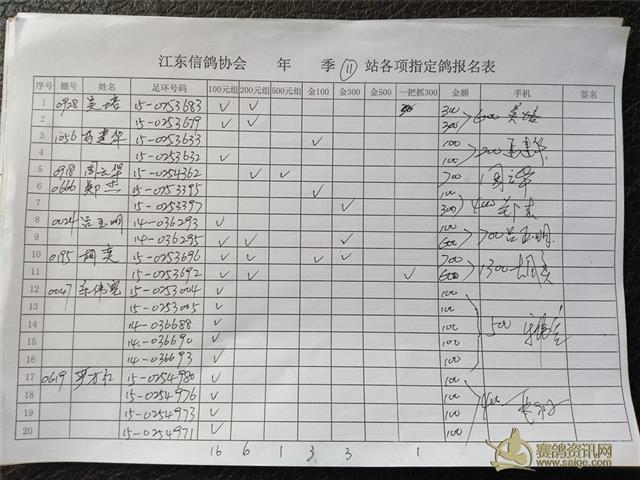 江东信鸽协会 年 季 ⑪ 站各项指定鸽报名表
序号 棚号 姓名 足环号码 100元组 200元组 500元组 金100 金300 金500 一把抓300 金额 手机 签名
1 0928 15-0253683 ✓ ✓ 300
2 15-0253679 ✓ ✓ 300 600
3 1056 马建华 15-0253633 ✓ 100
4 15-0253632 ✓ 100 200 马建华
5 0918 周云华 15-0254362 ✓ ✓ 700
6 0666 郑杰 15-0253395 ✓ 100
7 15-0253397 ✓ 300 400 郑杰
8 0024 吕玉明 14-036293 ✓ 100
9 14-036295 ✓ ✓ ✓ 600 700 吕玉明
10 0185 胡奕 15-0253696 ✓ ✓ ✓ ✓ 700
11 15-0253692 ✓ ✓ ✓ 600 1300 胡奕
12 0047 15-0253004 ✓ 100
13 15-0253005 ✓ 100
14 14-036688 ✓ 100 500
15 14-036690 ✓ 100
16 14-036693 ✓ 100
17 0619 15-0254980 ✓ 100
18 15-0254976 ✓ 100 400
19 15-0254973 ✓ 100
20 15-0254971 ✓ 100
16 6 1 3 3 1
赛鸽资讯网
www.saige.com